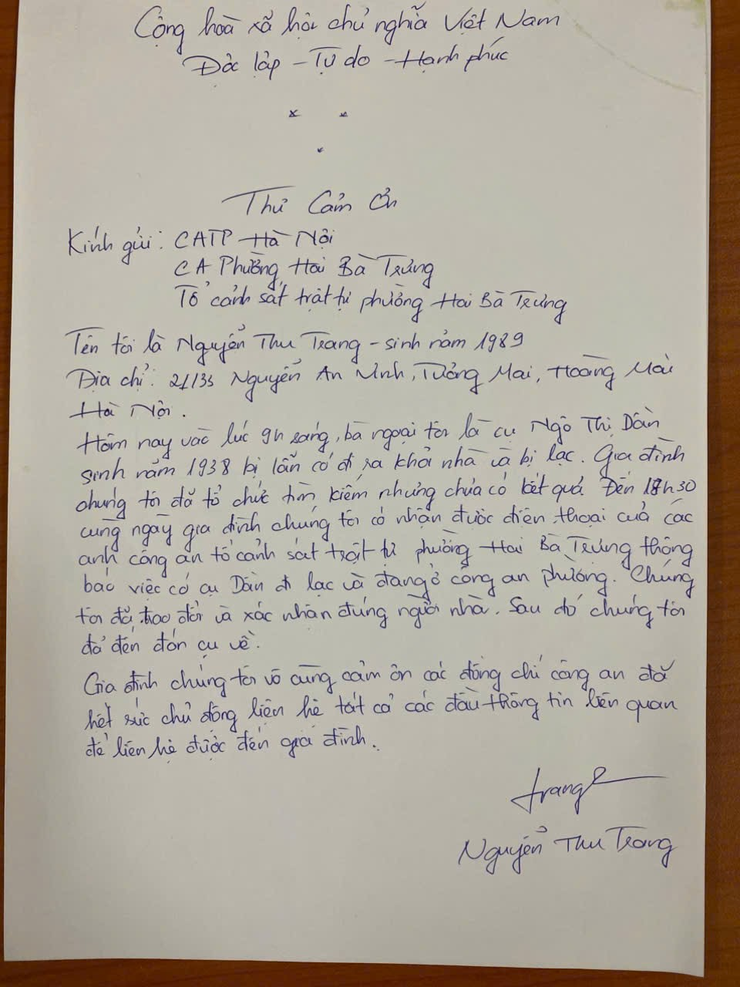 Cộng hoà xã hội chủ nghĩa Việt Nam
Độc lập - Tự do - Hạnh phúc
Thư Cảm Ơn
Kính gửi: CATP Hà Nội
CA Phường Hai Bà Trưng
Tổ cảnh sát trật tự phường Hai Bà Trưng
Tên tôi là Nguyễn Thu Trang - sinh năm 1989
Địa chỉ: 21/35 Nguyễn An Ninh, Tương Mai, Hoàng Mai
Hà Nội.
Hôm nay vào lúc 9h sáng, bà ngoại tôi là cụ Ngô Thị Dần
sinh năm 1938 bị lẫn có đi ra khỏi nhà và bị lạc. Gia đình
chúng tôi đã tổ chức tìm kiếm nhưng chưa có kết quả. Đến 18h30
cùng ngày gia đình chúng tôi có nhận được điện thoại của các
anh công an tổ cảnh sát trật tự phường Hai Bà Trưng thông
báo việc có cụ Dần đi lạc và đang ở công an phường. Chúng
tôi đã trao đổi và xác nhận đúng người nhà. Sau đó chúng tôi
đã đến đón cụ về.
Gia đình chúng tôi vô cùng cảm ơn các đồng chí công an đã
hết sức chủ động liên hệ tất cả các đầu thông tin liên quan
để liên hệ được đến gia đình.
Trang
Nguyễn Thu Trang